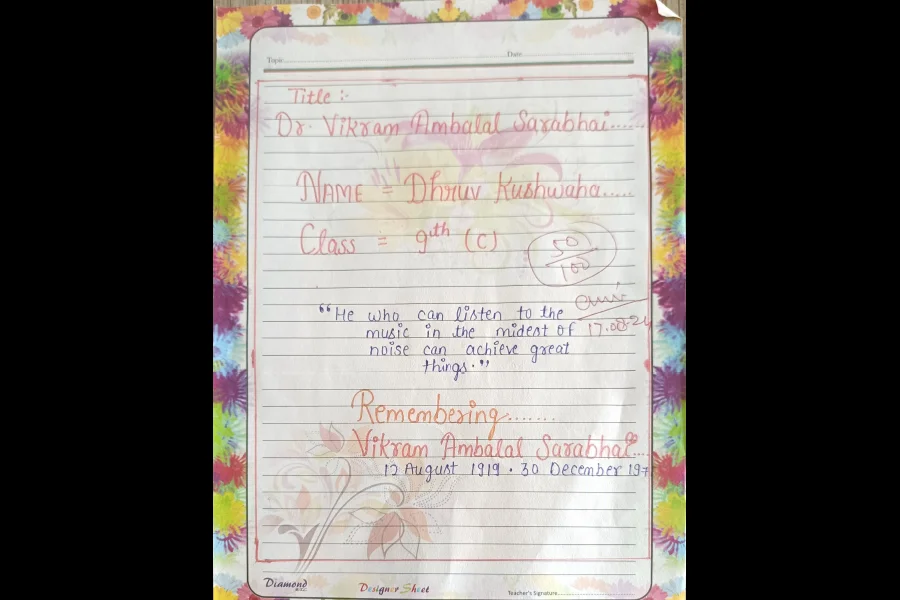 Topic
Date
Title :-
Dr. Vikram Ambalal Sarabhai......
NAME = Dhruv Kushwaha.....
Class = 9th (C)
50
100
"He who can listen to the
music in the midest of
17.08.24
noise can achieve great
things."
Remembering.......
Vikram Ambalal Sarabhai...
12 August 1919 . 30 December 197
Diamond
Designer Sheet
Teacher's Signature